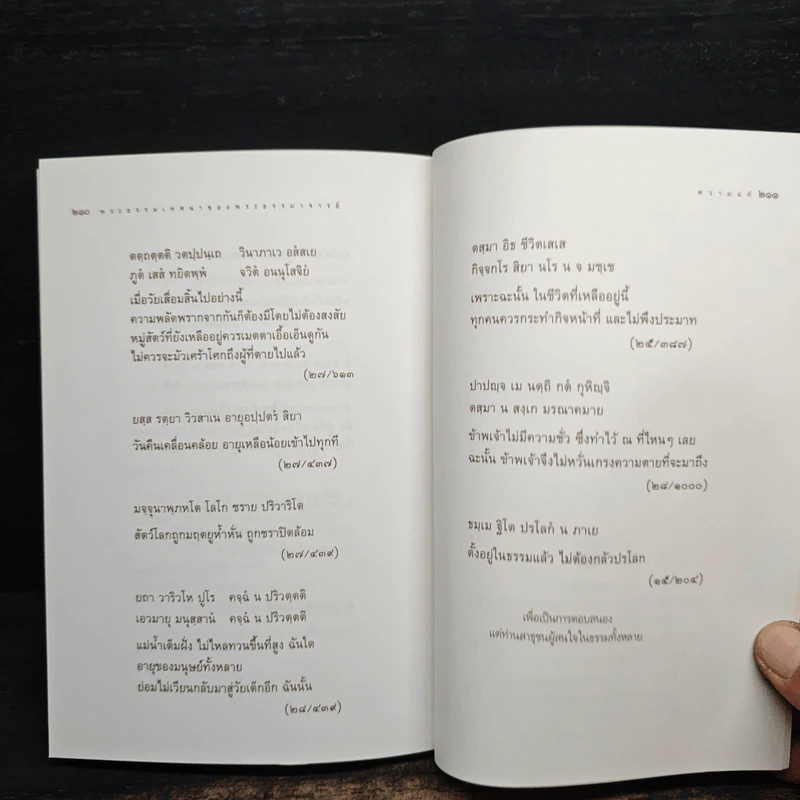 ๒๑๐ พระธรรมเทศนาของพระธรรมาจารย์
ตตฺถตฺตติ วตปฺปนฺเถ วินาภาเว อสํสเย
ภูตํ เสสํ ทยิตพฺพํ จวิตํ อนนุโสจิยํ
เมื่อวัยเสื่อมสิ้นไปอย่างนี้
ความพลัดพรากจากกันก็ต้องมีโดยไม่ต้องสงสัย
หมู่สัตว์ที่ยังเหลืออยู่ควรเมตตาเอื้อเอ็นดูกัน
ไม่ควรจะมัวเศร้าโศกถึงผู้ที่ตายไปแล้ว
(๒๗/๖๑๓
ยสฺส รตฺยา วิวสาเน อายุอปฺปตรํ สิยา
วันคืนเคลื่อนคล้อย อายุเหลือน้อยเข้าไปทุกที
(๒๗/๔๓๗)
มจฺจุนาพฺภหโต โลโก ชราย ปริวาริโต
สัตว์โลกถูกมฤตยูห้ำหั่น ถูกชราปิดล้อม
(๒๗/๔๓๙)
ยถา วาริวโห ปูโร คจฺฉํ น ปริวตฺตติ
เอวมายุ มนุสฺสานํ คจฺฉํ น ปริวตฺตติ
แม่น้ำเต็มฝั่ง ไม่ไหลทวนขึ้นที่สูง ฉันใด
อายุของมนุษย์ทั้งหลาย
ย่อมไม่เวียนกลับมาสู่วัยเด็กอีก ฉันนั้น
(๒๘/๔๓๙)
ความแก่ ๒๑๑
ตสฺมา อิธ ชีวิตเสเส
กิจฺจกโร สิยา นโร น จ มชฺเช
เพราะฉะนั้น ในชีวิตที่เหลืออยู่นี้
ทุกคนควรกระทำกิจหน้าที่ และไม่พึงประมาท
(๒๕/๓๘๗)
ปาปญฺจ เม นตฺถิ กตํ กุหิญฺจิ
ตสฺมา น สงฺเก มรณาคมาย
ข้าพเจ้าไม่มีความชั่ว ซึ่งทำไว้ ณ ที่ไหนๆ เลย
ฉะนั้น ข้าพเจ้าจึงไม่หวั่นเกรงความตายที่จะมาถึง
(๒๘/๑๐๐๐)
ธมฺเม ฐิโต ปรโลกํ น ภาเย
ตั้งอยู่ในธรรมแล้ว ไม่ต้องกลัวปรโลก
(๑๕/๒๐๔)
เพื่อเป็นการตอบสนอง
แด่ท่านสาธุชนผู้สนใจในธรรมทั้งหลาย